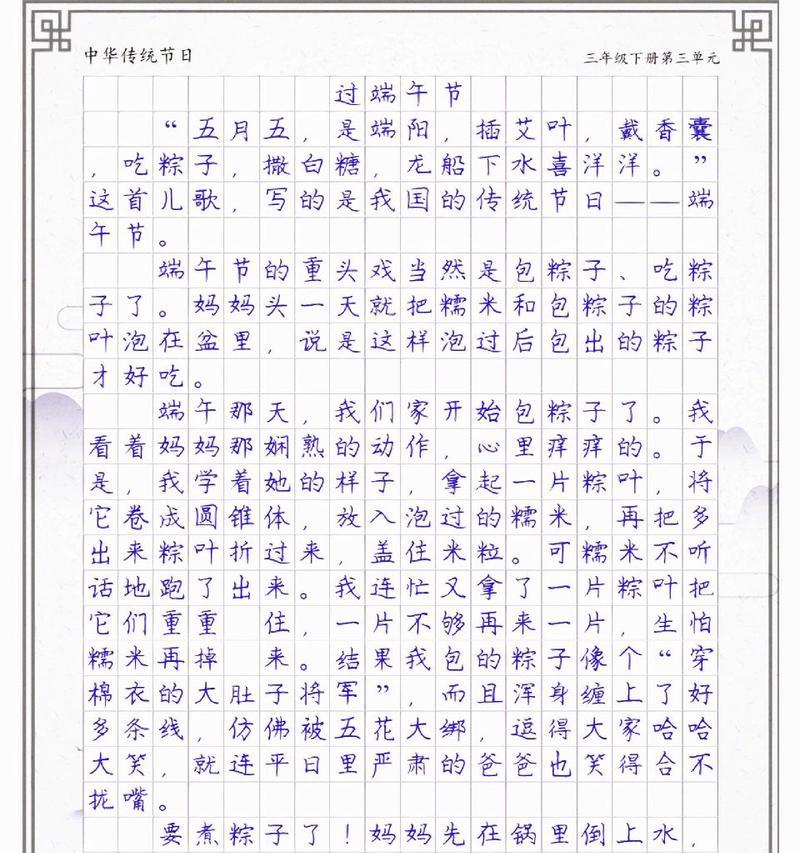 中华传统节日
三年级下册第三单元
过端午节
“五月五，是端阳，插艾叶，戴香囊
，吃粽子，撒白糖，龙船下水喜洋洋。”
这首儿歌，写的是我国的传统节日——端
午节。
端午节的重头戏当然是包粽子、吃粽
子了。妈妈头一天就把糯米和包粽子的粽
叶泡在盆里，说是这样泡过后包出的粽子
才好吃。
端午那天，我们家开始包粽子了。我
看着妈妈那娴熟的动作，心里痒痒的。于
是，我学着她的样子，拿起一片粽叶，将
它卷成圆锥体，放入泡过的糯米，再把多
出来粽叶折过来，盖住米粒。可糯米不听
话地跑了出来。我连忙又拿了一片粽叶把
它们重重 住，一片不够再来一片，生怕
糯米再掉 来。结果我包的粽子像个“穿
棉衣的大肚子将军”，而且浑身缠上了好
多条线，仿佛被五花大绑，逗得大家哈哈
大笑，就连平日里严肃的爸爸也笑得合不
拢嘴。
要煮粽子了！妈妈先在锅里倒上水，